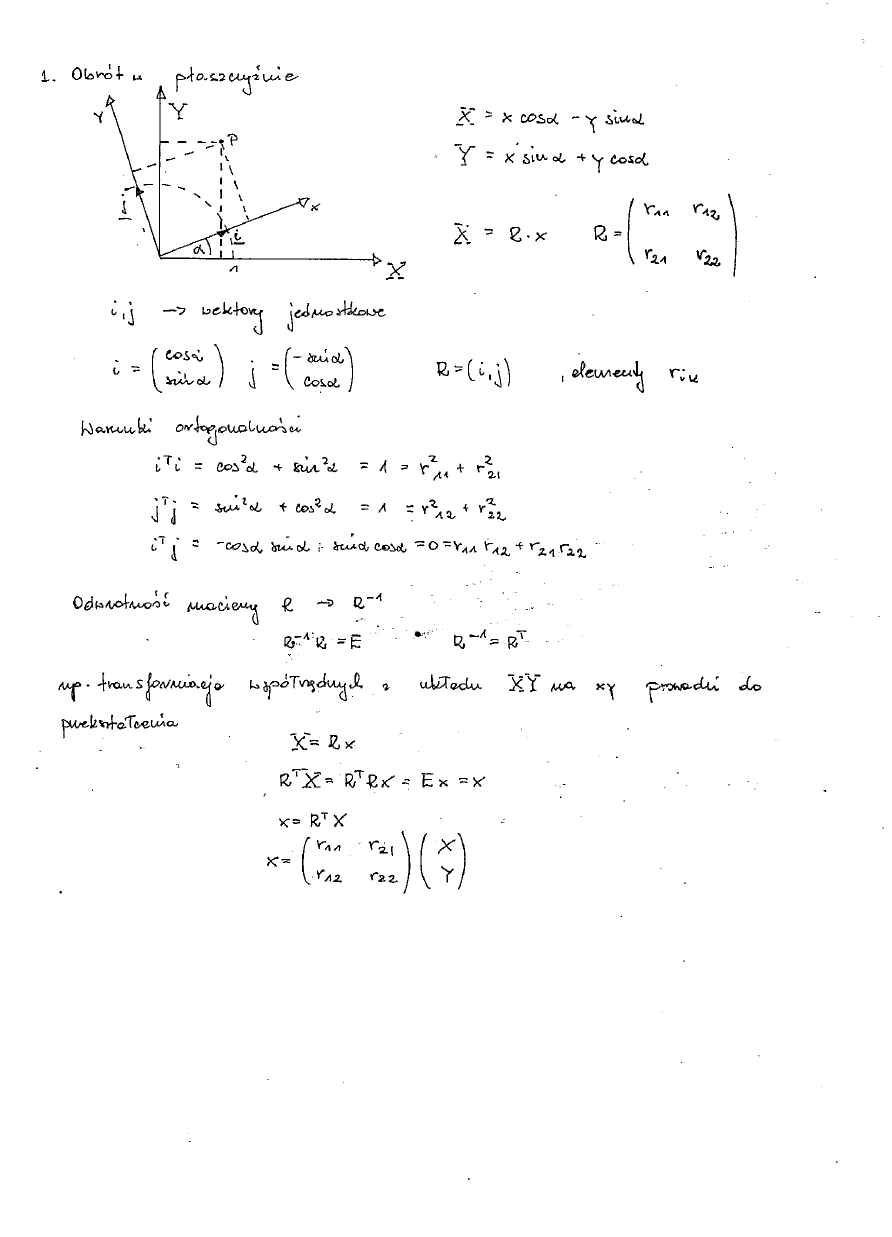 1. Obrót w płaszczyźnie
Y Y P x X j i α 1
X = x cosα - y sinα
Y = x sinα + y cosα
X = R·x R = ( r11 r12
r21 r22 )
i,j → wektory jednostkowe
i = ( cosα sinα ) j = ( -sinα cosα ) R = (i,j) , elementy rik
Warunki ortogonalności
iᵀi = cos²α + sin²α = 1 = r²11 + r²21
jᵀj = sin²α + cos²α = 1 = r²12 + r²22
iᵀj = -cosα sinα + sinα cosα = 0 = r11 r12 + r21 r22
Odwrotność macierzy R → R⁻¹
R⁻¹·R = E R⁻¹ = Rᵀ
np. transformacja współrzędnych z układu XY na xy prowadzi do
przekształcenia
X = Rx
RᵀX = RᵀRx = Ex = x
x = RᵀX
x = ( r11 r21 ) ( X )
( r12 r22 ) ( Y )